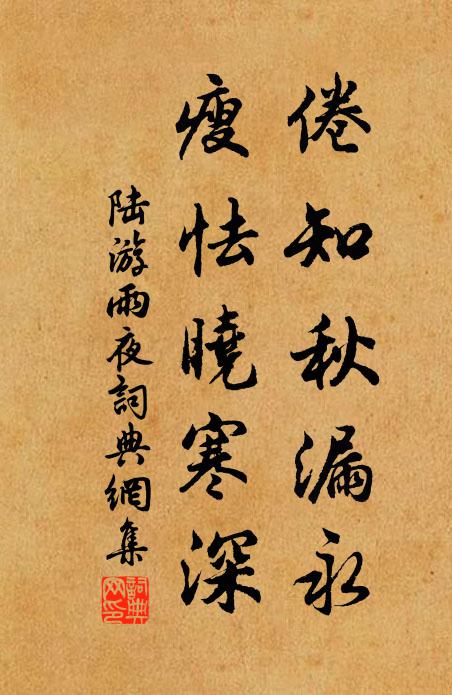 倦知秋漏永
瘦怯曉寒深
陆游雨夜詞典網集
詞典网印